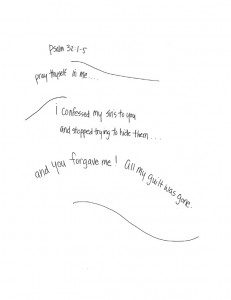 Psalm 32:1-5
pray thyself in me....
I confessed my sins to you
and stopped trying to hide them...
and you forgave me! All my guilt was gone.